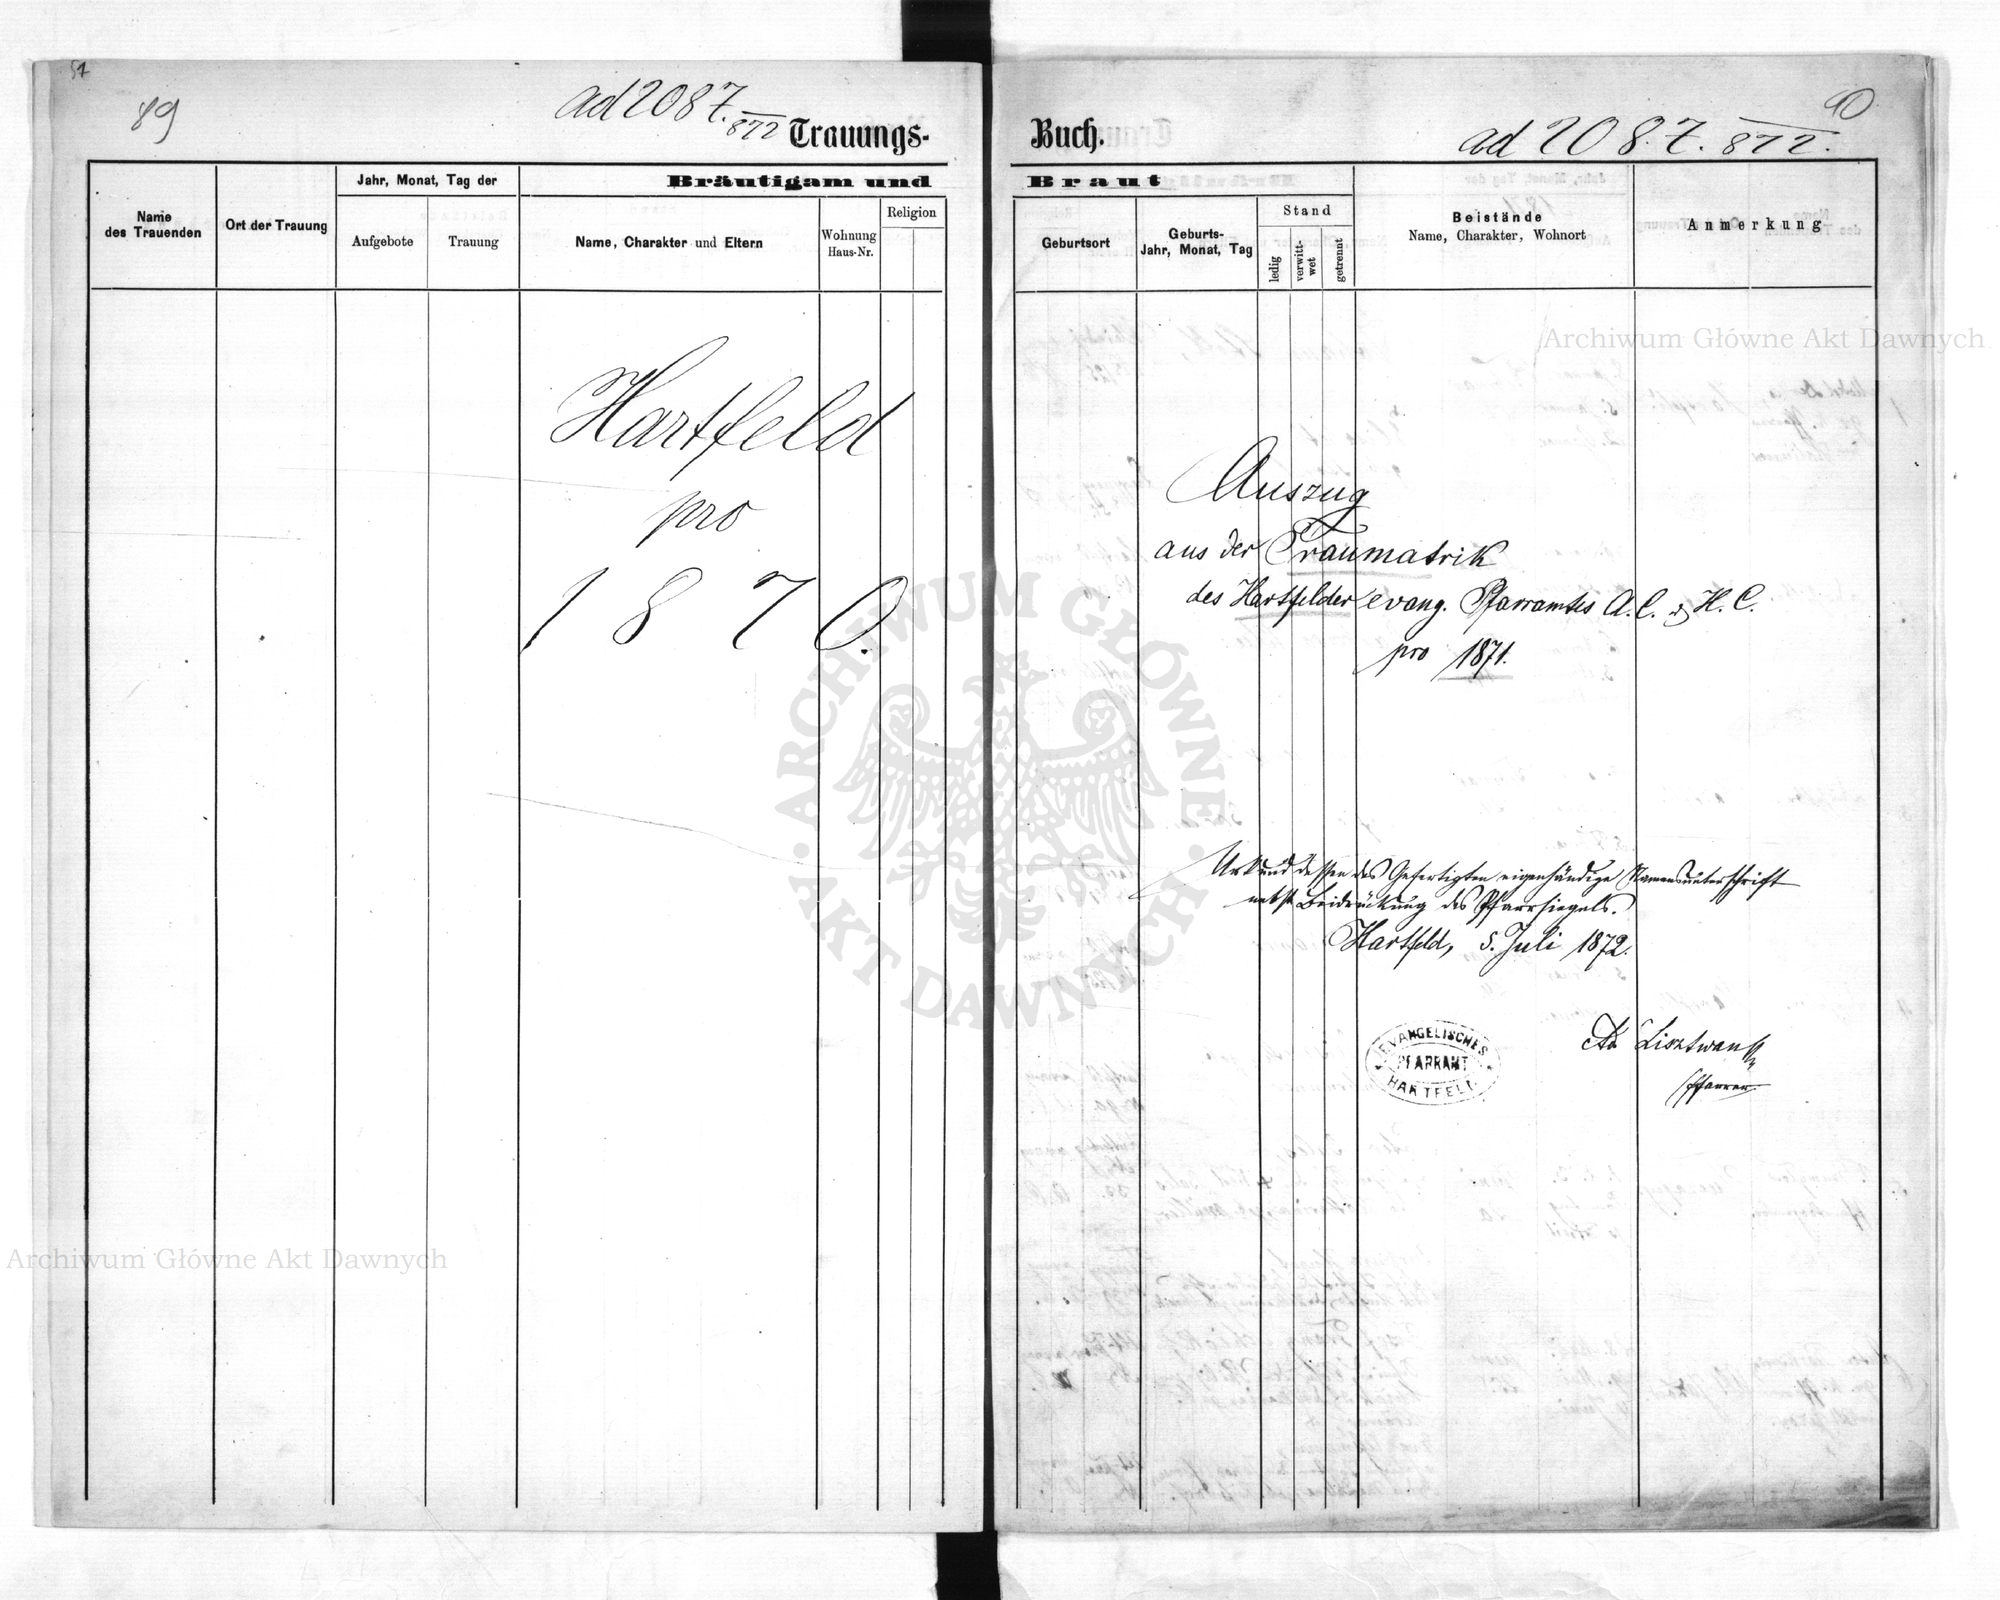 51
89
ad 2087./872
Trauungs-
Name des Trauenden
Ort der Trauung
Jahr, Monat, Tag der
Aufgebote
Trauung
Bräutigam und
Name, Charakter und Eltern
Wohnung Haus-Nr.
Religion
Hartfeld
pro
1870.
Archiwum Główne Akt Dawnych
90
Buch.
ad 2087./872.
Braut
Geburtsort
Geburts-
Jahr, Monat, Tag
Stand
ledig
verwitt-
wet
getrennt
Beistände
Name, Charakter, Wohnort
Anmerkung
Archiwum Główne Akt Dawnych
Auszug
aus der Traumatrik
des Hartfelder evang. Pfarramtes A.C. & H.C.
pro 1871.
ARCHIWUM GŁÓWNE AKT DAWNYCH
Urkund dessen des Gefertigten eigenhändige Namensunterschrift
nebst Beidrückung des Pfarrsiegels.
Hartfeld, 5. Juli 1872.
EVANGELISCHES
PFARRAMT
HARTFELD
Lisztwan
Pfarrer